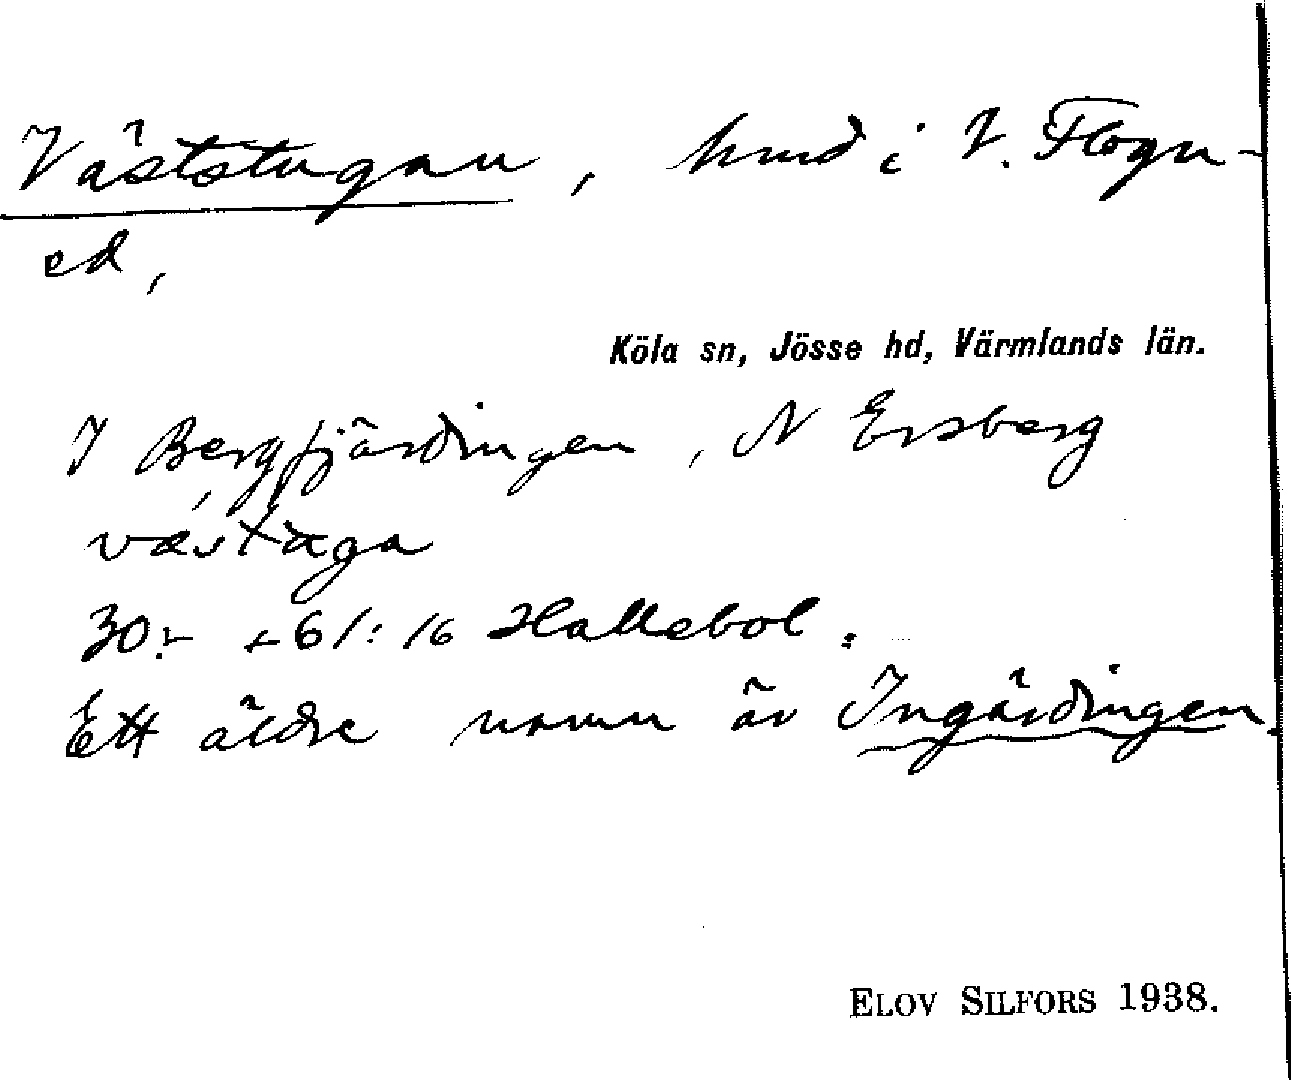 Väststugan, hmd i V. Flogn-
ed,
Köla sn, Jösse hd, Värmlands län.
I Bergfjärdingen, N Ersberg
västäga
30:- +61:16 Hallebol.
Ett äldre namn är Ingärdingen.
ELOV SILFORS 1938.